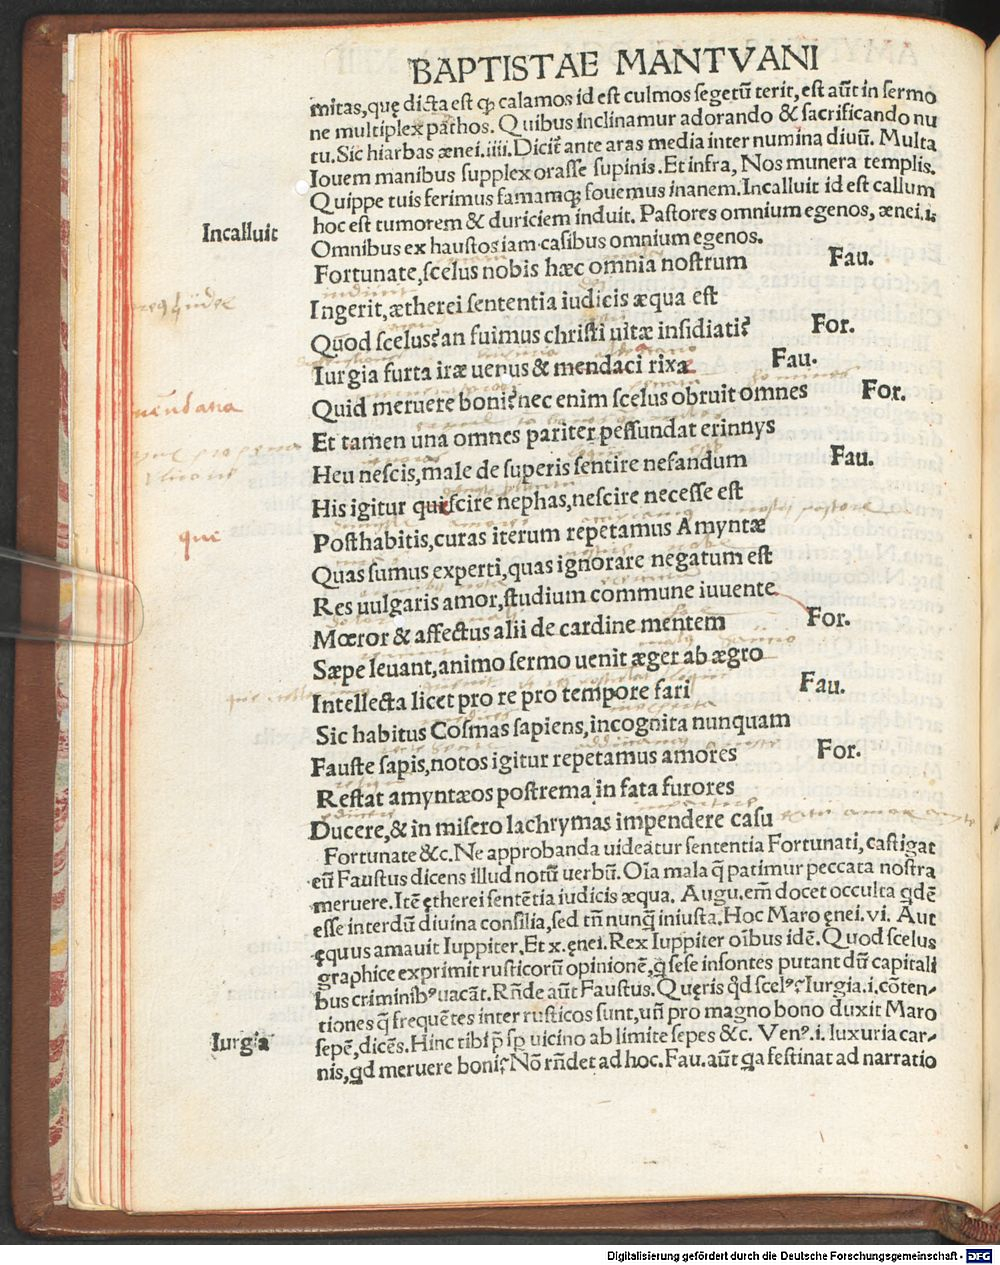 BAPTISTAE MANTVANI
mitas,quę dicta est ꝙ calamos id est culmos segetū terit,est aūt in sermo
ne multiplex pathos. Quibus inclinamur adorando & sacrificando nu
tu.Sic hiarbas ænei.iiii.Dicit᷑ ante aras media inter numina diuū. Multa
Iouem manibus supplex orasse supinis.Et infra, Nos munera templis.
Quippe tuis ferimus famamqꝫ fouemus inanem.Incalluit id est callum
hoc est tumorem & duriciem induit. Pastores omnium egenos, ænei.i.
Incalluit
Omnibus ex haustos iam casibus omnium egenos.
Fortunate,scelus nobis hæc omnia nostrum Fau.
Ingerit,ætherei sententia iudicis æqua est
Quod scelus?an fuimus christi uitæ insidiati? For.
Iurgia furta iræ uenus & mendaci rixæ Fau.
Quid meruere boni?nec enim scelus obruit omnes For.
Et tamen una omnes pariter pessundat erinnys
Heu nescis,male de superis sentire nefandum Fau.
His igitur quæ scire nephas,nescire necesse est
que
Posthabitis,curas iterum repetamus Amyntæ
Quas sumus experti,quas ignorare negatum est
Res uulgaris amor,studium commune iuuente
Mœror & affectus alii de cardine mentem For.
Sæpe leuant,animo sermo uenit æger ab ægro
Intellecta licet pro re pro tempore fari Fau.
Sic habitus Cosmas sapiens,incognita nunquam
Fauste sapis,notos igitur repetamus amores For.
Restat amyntæos postrema in fata furores
Ducere,& in misero lachrymas impendere casu
Fortunate &c.Ne approbanda uideatur sententia Fortunati, castigat
eū Faustus dicens illud notū uerbū. Oīa mala q̄ patimur peccata nostra
meruere.Itē ętherei sentētia iudicis æqua. Augu.em̄ docet occulta q̄dē
esse interdū diuina consilia,sed tn̄ nunq̄ iniusta.Hoc Maro ęnei.vi. Aut
ęquus amauit Iuppiter.Et x.ęnei.Rex Iuppiter oībus idē.Quod scelus
graphice exprimit rusticorū opinionē,q̄ sese insontes putant dū capitali
bus criminibꝰ uacāt.Rn̄de aūt Faustus.Quęris qd̄ scelꝰ?Iurgia.i.cōten-
tiones q̄ frequētes inter rusticos sunt,un̄ pro magno bono duxit Maro
Iurgia
sepē,dicēs.Hinc tibi q̄ sꝑ uicino ab limite sepes &c. Venꝰ.i.luxuria car-
nis,qd meruere boni?Nō rn̄det ad hoc.Fau.aūt qa festinat ad narratio
Digitalisierung gefördert durch die Deutsche Forschungsgemeinschaft - DFG